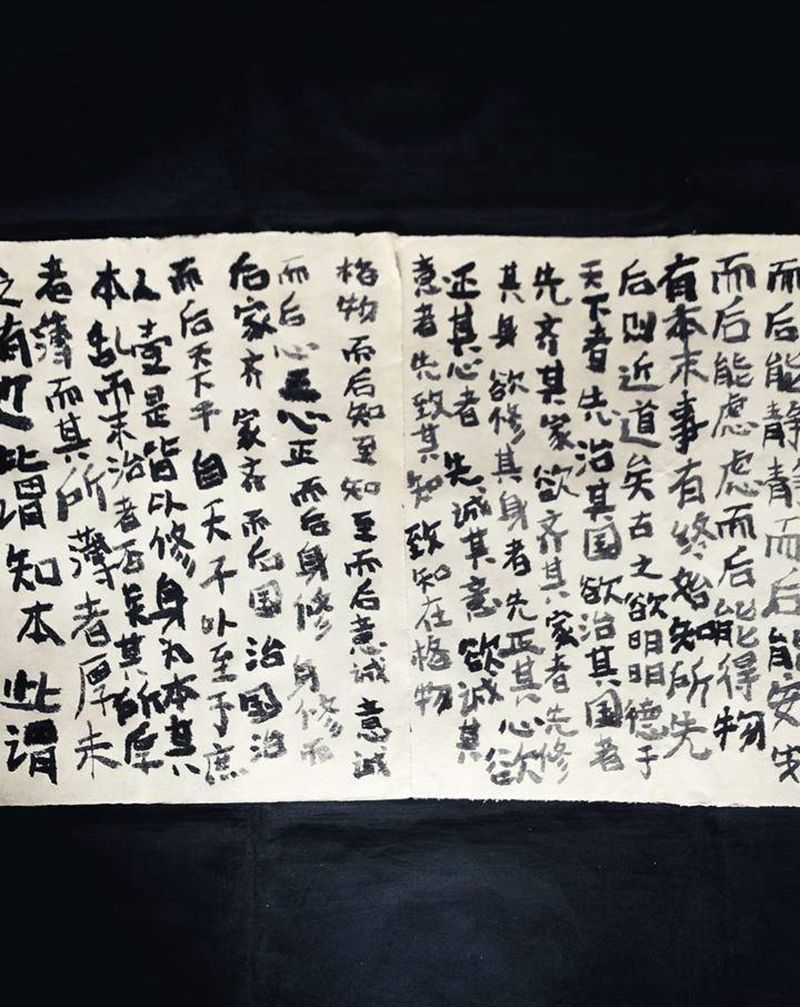 而后能静静而后能安安
而后能虑虑而后能得物
有本末事有终始知所先
后则近道矣古之欲明明德于
天下者先治其国欲治其国者
先齐其家欲齐其家者先修
其身欲修其身者先正其心欲
正其心者先诚其意欲诚其
意者先致其知致知在格物
格物而后知至知至而后意诚意诚
而后心正心正而后身修身修而
后家齐家齐而后国治国治
而后天下平自天子以至于庶
人壹是皆以修身为本其
本乱而末治者否矣其所厚
者薄而其所薄者厚未
之有也此谓知本此谓